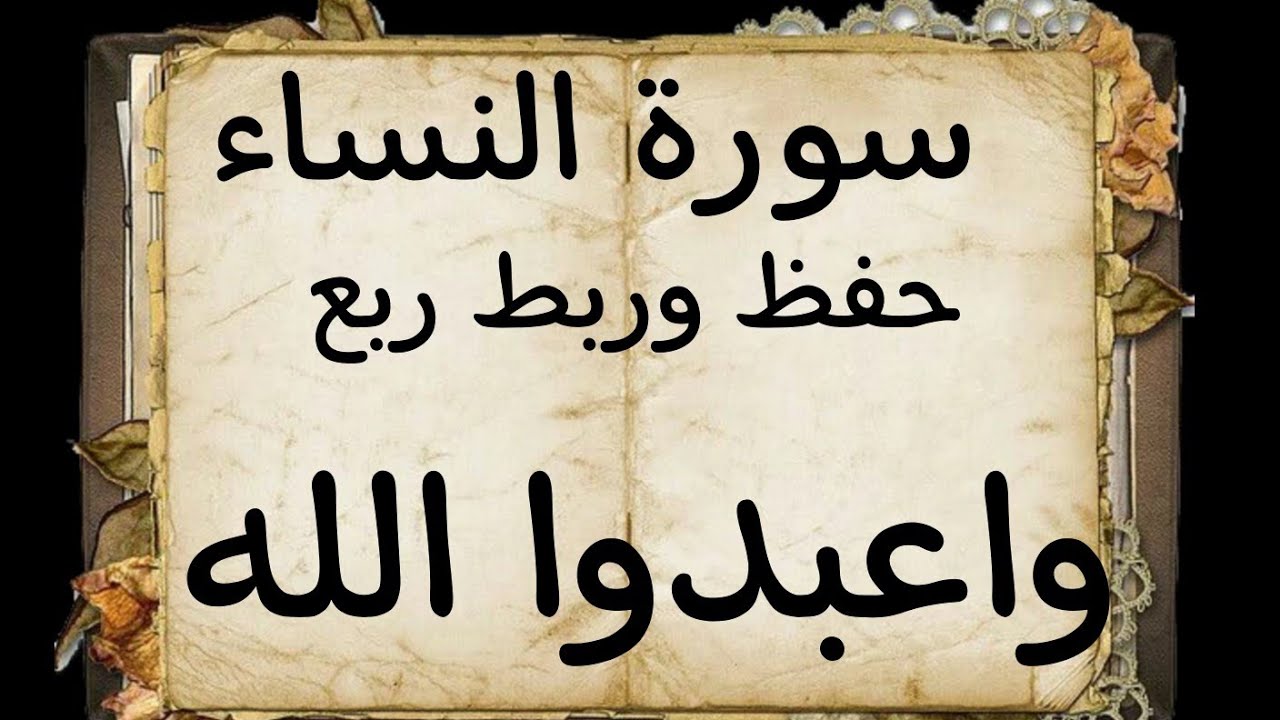 سورة النساء
حفظ وربط ربع
واعبدوا الله